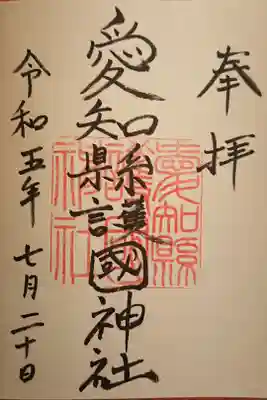 奉拝
愛知縣護國神社
令和五年七月二十日
愛知縣
神社